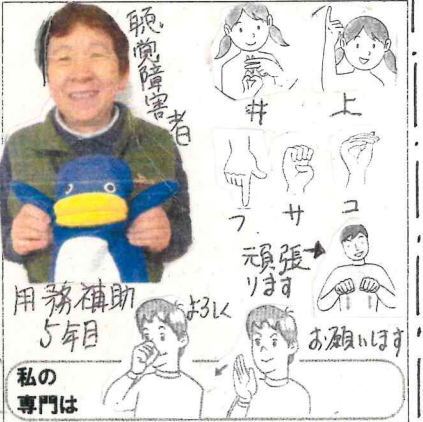 聴覚障害者
井 上
フ サ コ
頑張
ります
用務補助
5年目
よろしく
お願いします
私の
専門は